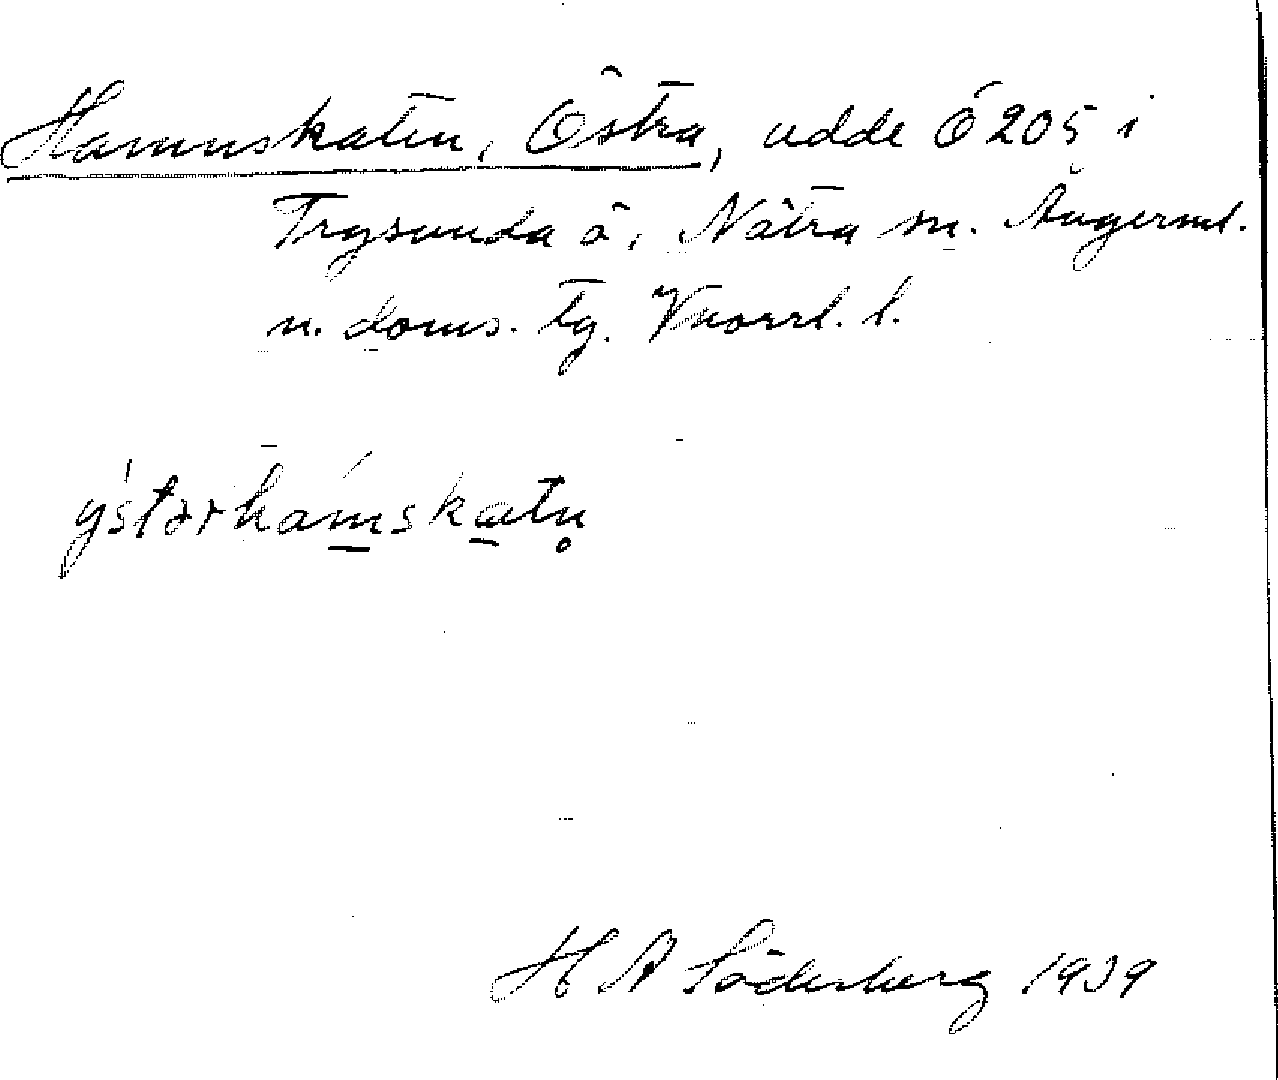 Hamnskaten, Östra, udde Ö 205 i
Trysunda ö, Nätra sn. Ångerml.
n. doms. tg. Vnorrl. l.
ýstərhámskatn̥
H A Söderberg 1939